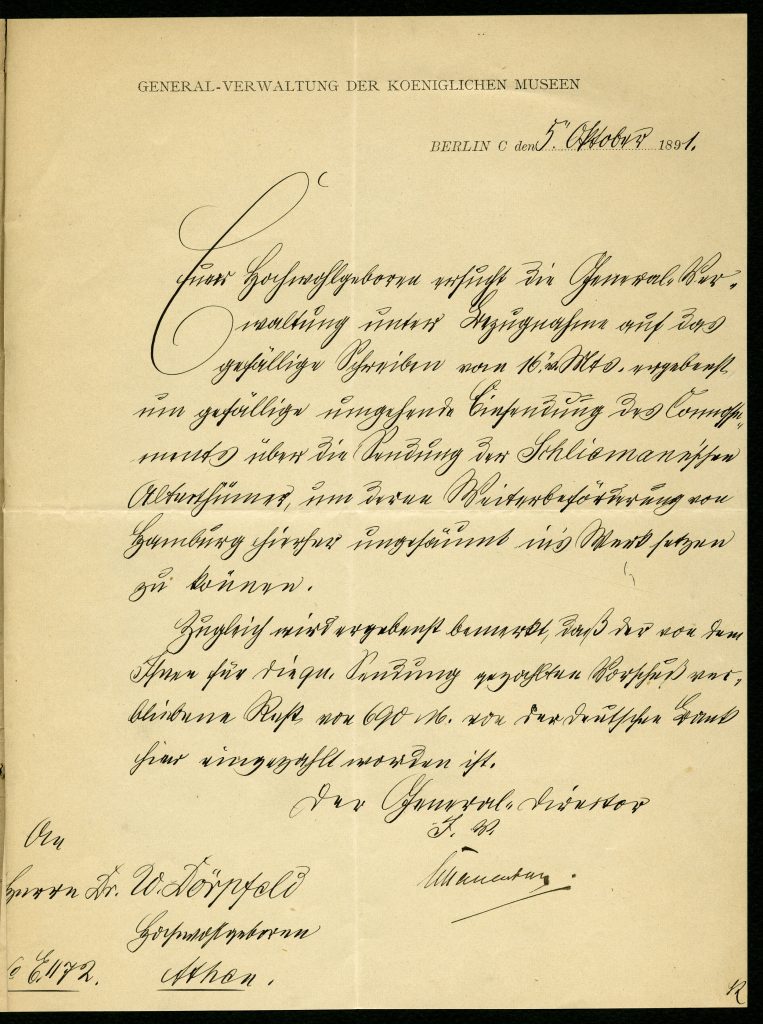 GENERAL-VERWALTUNG DER KOENIGLICHEN MUSEEN
BERLIN C den 5. Oktober 1891.
Euer Hochwohlgeboren ersucht die General-Ver-
waltung unter Bezugnahme auf das
gefällige Schreiben vom 16. v. Mts. ergebenst
um gefällige umgehende Einsendung des Connosse-
ments über die Sendung der Schliemann'schen
Alterthümer, um deren Weiterbeförderung von
Hamburg hierher ungesäumt in's Werk setzen
zu können.
Zugleich wird ergebenst bemerkt, daß der von dem
Ihnen für die qu. Sendung gezahlten Vorschuß ver-
bliebene Rest von 690 M. von der deutschen Bank
hier eingezahlt worden ist.
Der General-Director
I. V.
An
Herrn Dr. W. Dörpfeld
Hochwohlgeboren
Athen.
1172.